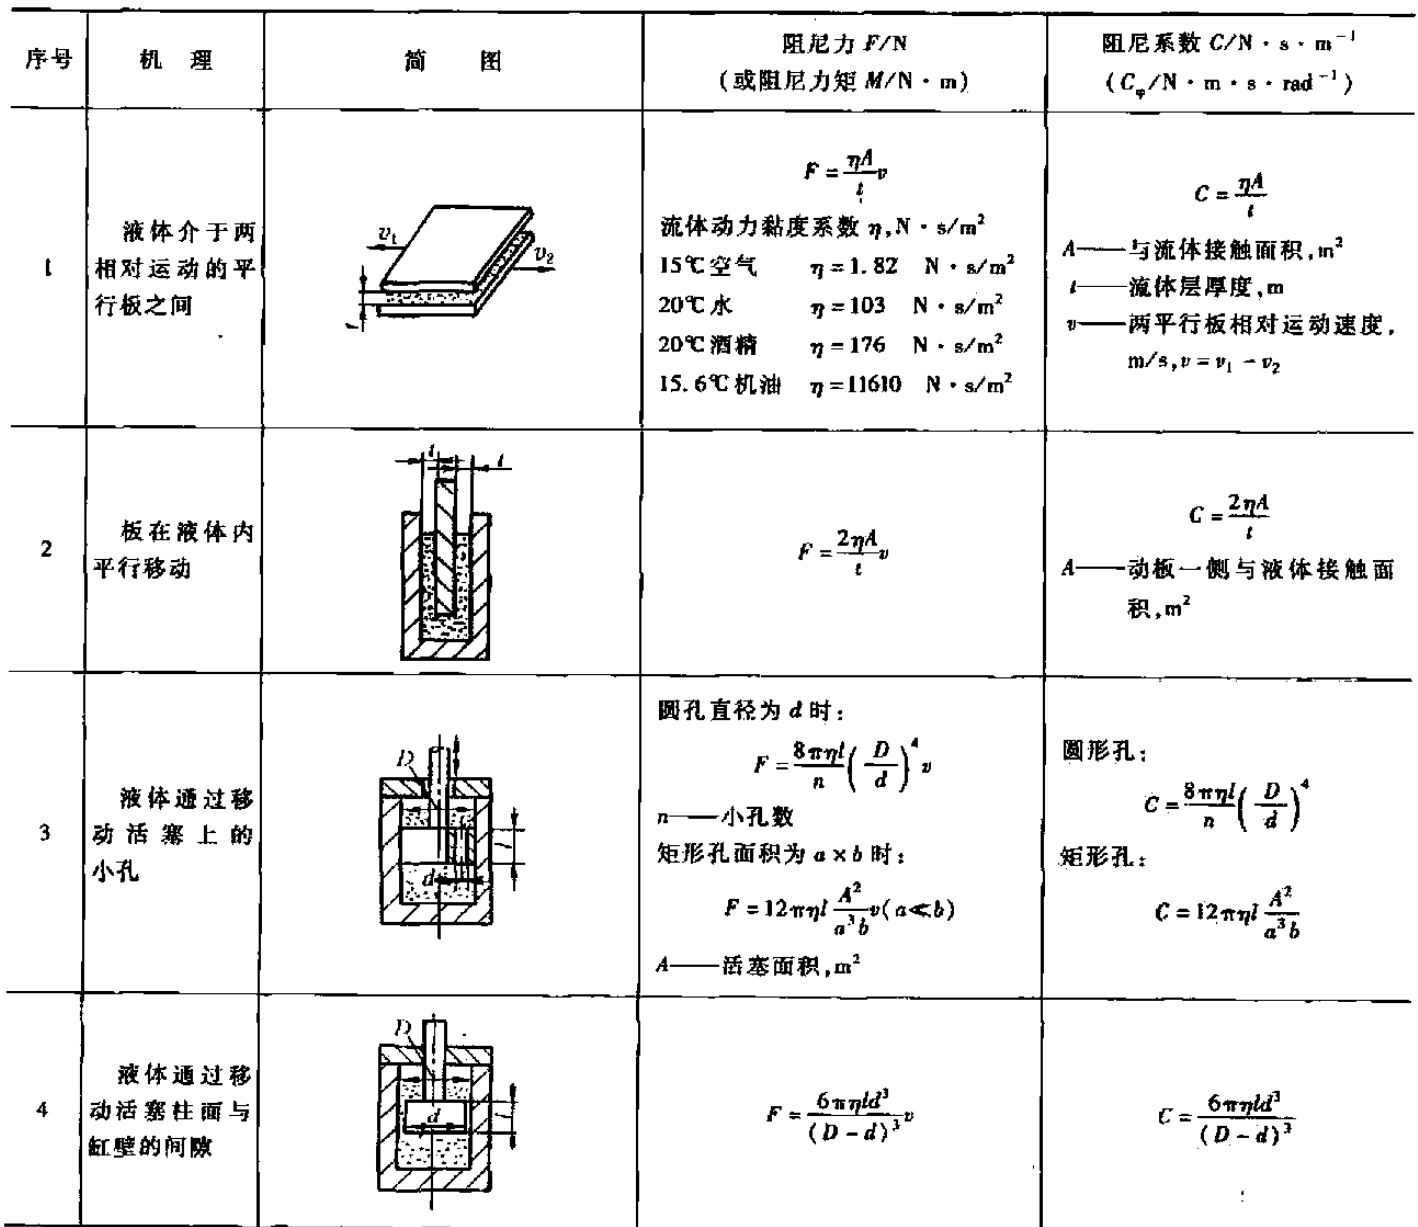 序号
机 理
简 图
阻尼力 F/N
(或阻尼力矩 M/N·m)
阻尼系数 C/N·s·m⁻¹
(Cφ/N·m·s·rad⁻¹)
1
液体介于两
相对运动的平
行板之间
v₁
v₂
t
F = ηA/t v
流体动力黏度系数 η,N·s/m²
15℃空气 η=1.82 N·s/m²
20℃水 η=103 N·s/m²
20℃酒精 η=176 N·s/m²
15.6℃机油 η=11610 N·s/m²
C = ηA/t
A——与流体接触面积,m²
t——流体层厚度,m
v——两平行板相对运动速度,
m/s,v=v₁-v₂
2
板在液体内
平行移动
t t
F = 2ηA/t v
C = 2ηA/t
A——动板一侧与液体接触面
积,m²
3
液体通过移
动活塞上的
小孔
D
l
d
圆孔直径为 d 时:
F = 8πηl/n (D/d)⁴ v
n——小孔数
矩形孔面积为 a×b 时:
F = 12πηl A²/a³b v(a≪b)
A——活塞面积,m²
圆形孔:
C = 8πηl/n (D/d)⁴
矩形孔:
C = 12πηl A²/a³b
4
液体通过移
动活塞柱面与
缸壁的间隙
D
d
l
F = 6πηld³/(D-d)³ v
C = 6πηld³/(D-d)³